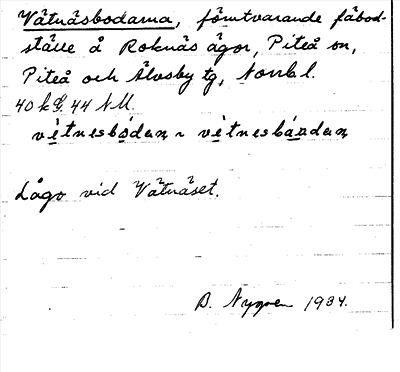 Vätnäsbodarna, förutvarande fäbod-
ställe å Roknäs ägor, Piteå sn,
Piteå och Älvsby tg, Norrb l.
40 k 44 NM.
vẹtnesbọdaṇ ~ vẹtnesbáọdaṇ
Lågo vid Vätnäset.
B. Nygren 1934.